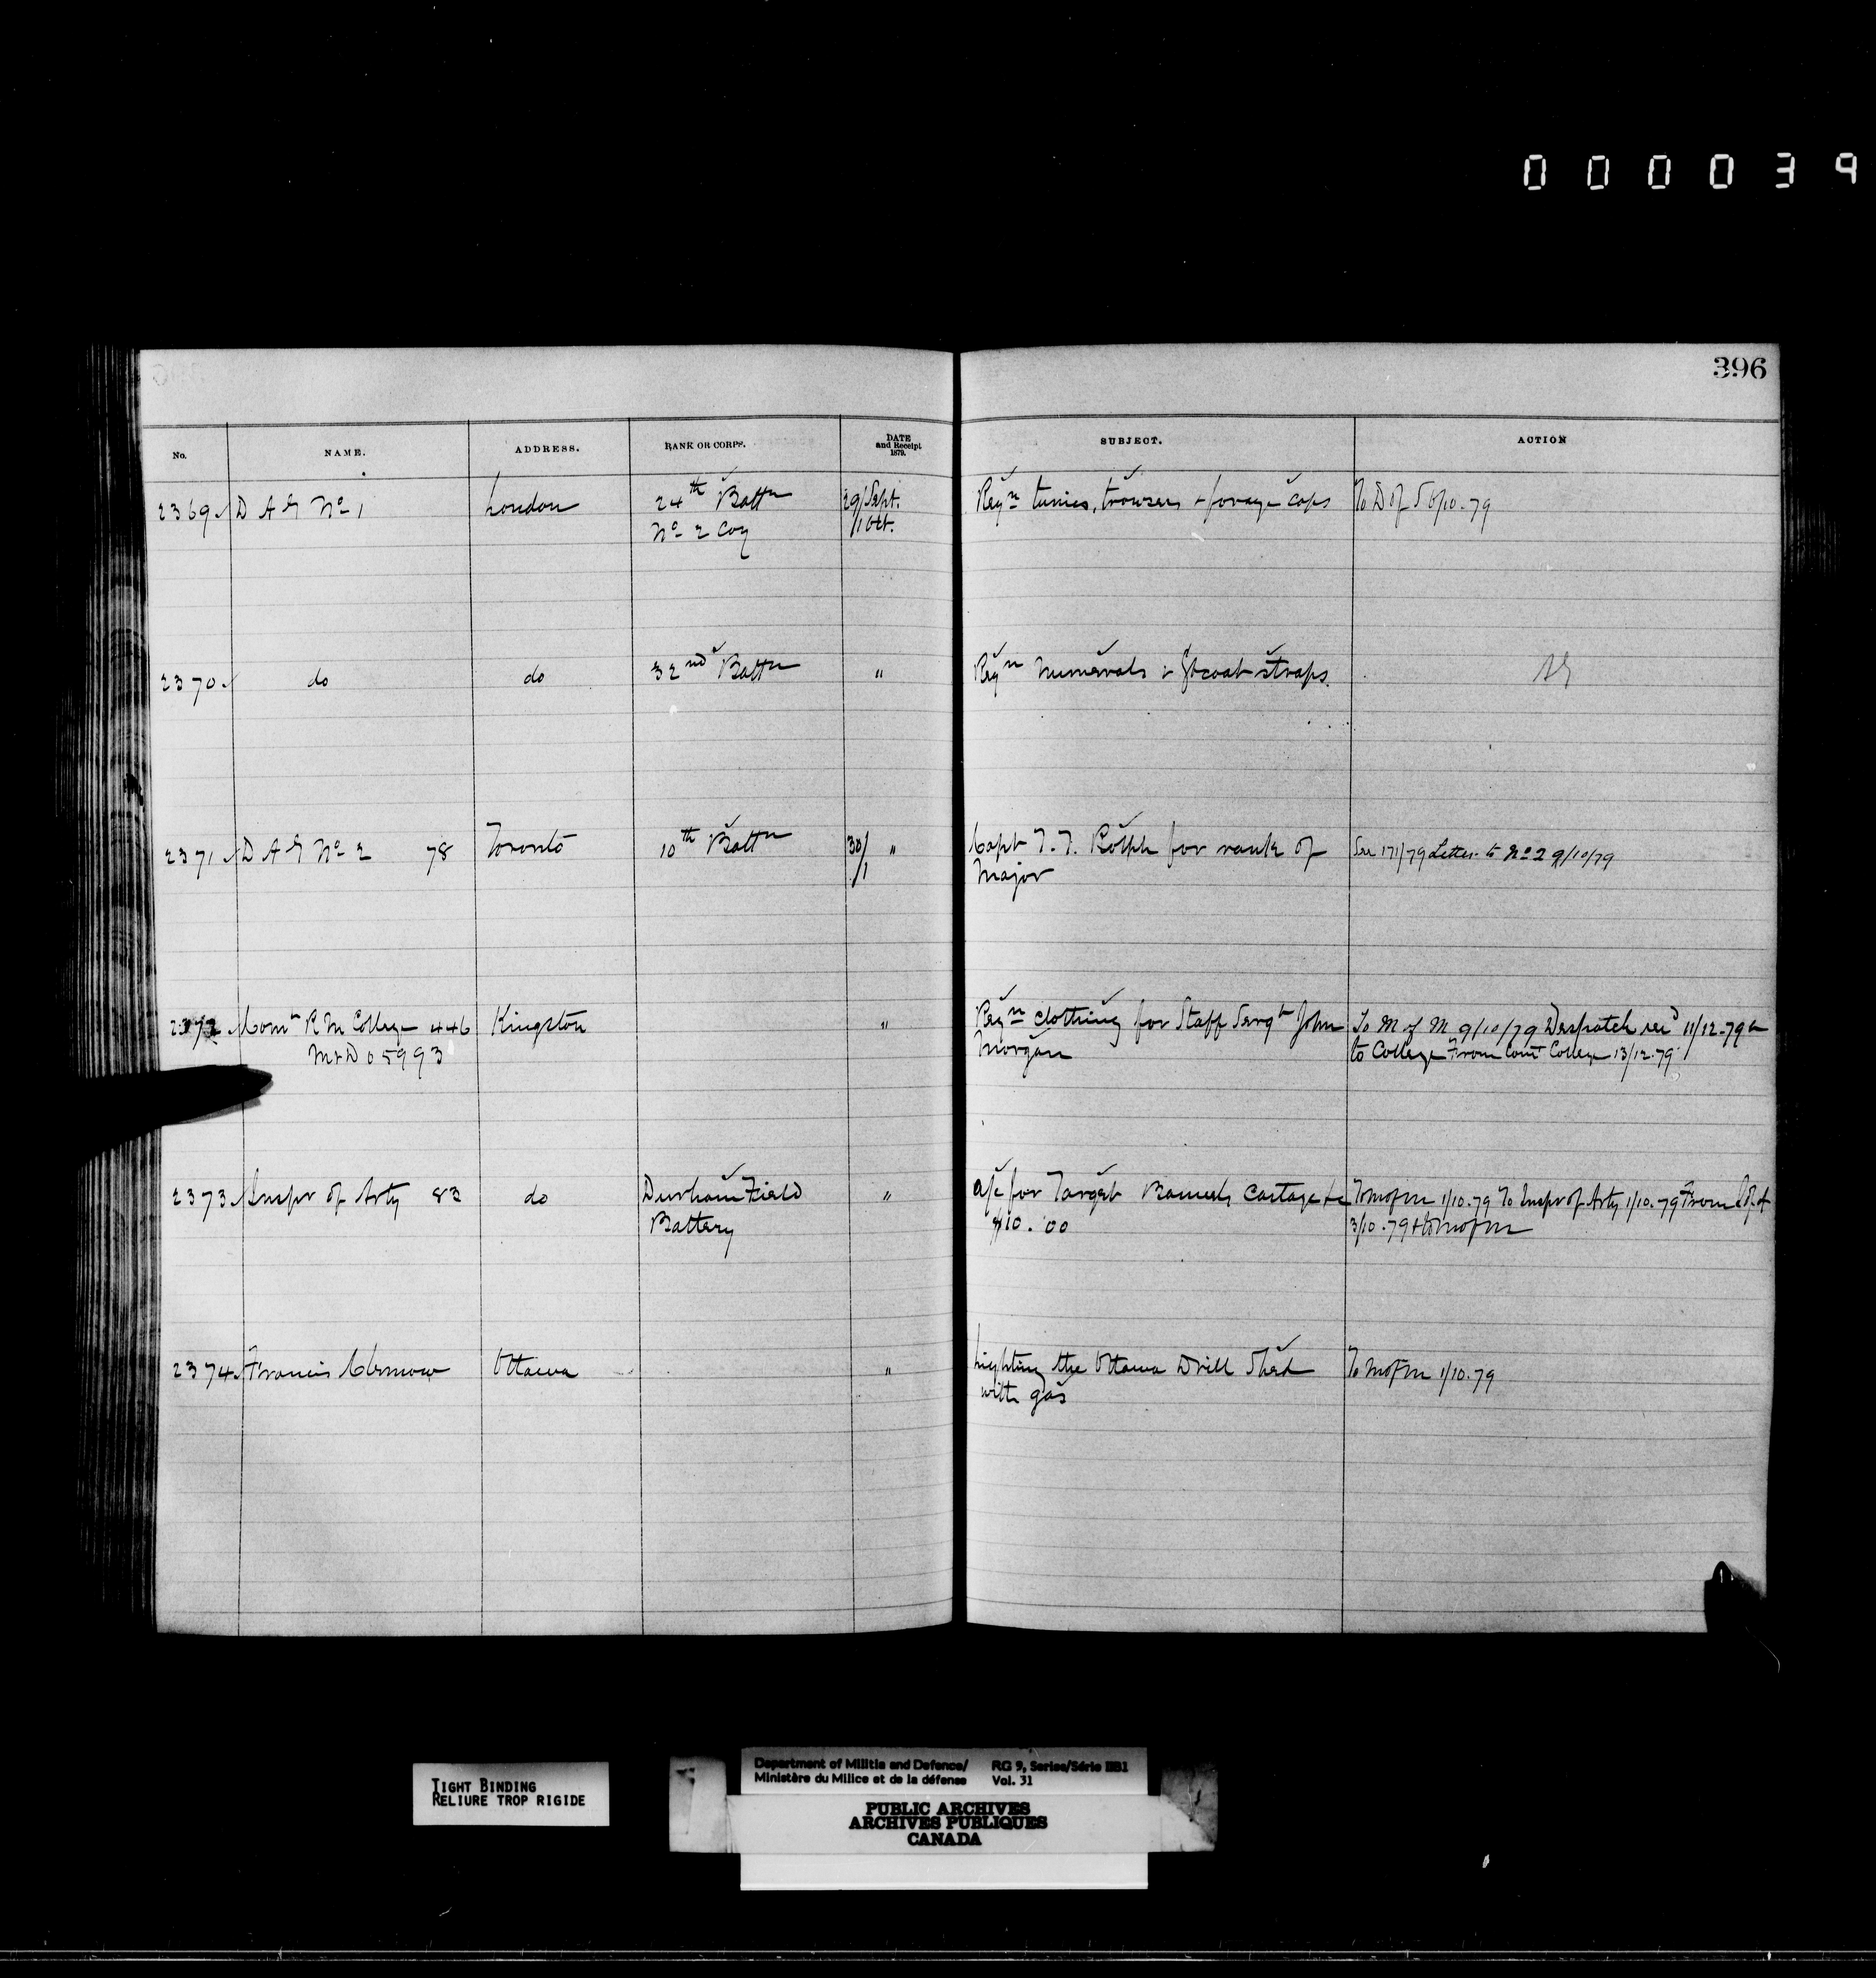 000039
396
No. NAME. ADDRESS. RANK OR CORPS. DATE and Receipt 1879. SUBJECT. ACTION
2369 D A G No 1 London 24th Battn 29/Sept. Reqn tunics, trowsers + forage caps To D of S 6/10.79
No 2 Coy /1 Oct.
2370 do do 32nd Battn " Reqn numerals + Gtcoat straps.
2371 D A G No 2 78 Toronto 10th Battn 30/ " Capt T. T. Rolph for rank of See 171/79 Letter to No 2 9/10/79
/1 Major
2372 Comt R M College 446 Kingston " Reqn clothing for Staff Sergt John To M of M 9/10/79 Despatch recd 11/12.79
M+D 05993 Morgan to College From Comt College 13/12.79
2373 Inspr of Arty 83 do Durham Field " a/c for Target Cartage &c To M of M 1/10.79 To Inspr of Arty 1/10.79 From I of A
Battery $10.00 3/10.79 + to M of M
2374 Francis Clemow Ottawa " Lighting the Ottawa Drill Shed To M of M 1/10.79
with gas
TIGHT BINDING
RELIURE TROP RIGIDE
Department of Militia and Defence/ RG 9, Series/Série IIB1
Ministère du Milice et de la défense Vol. 31
PUBLIC ARCHIVES
ARCHIVES PUBLIQUES
CANADA